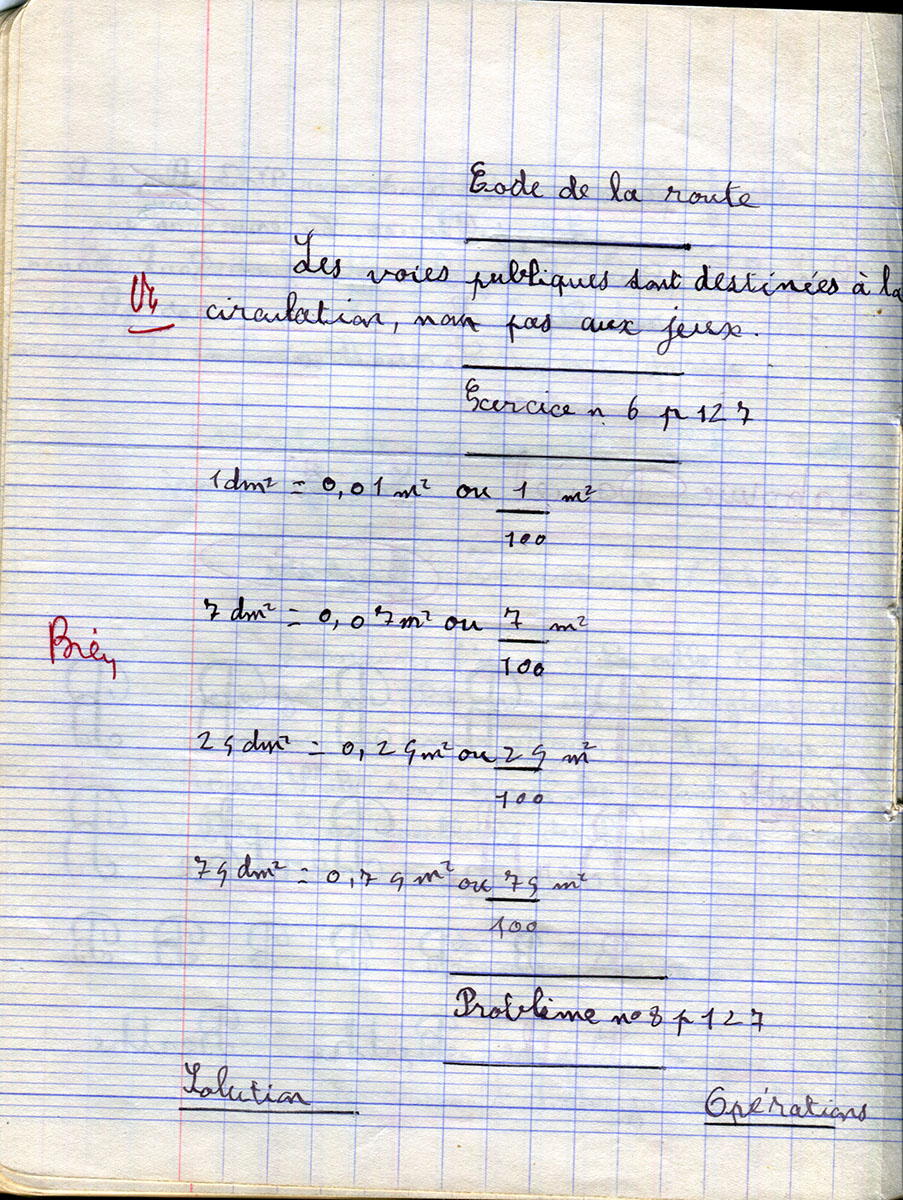 Code de la route
Les voies publiques sont destinées à la
Vu
circulation, non pas aux jeux.
Exercice n. 6 p 127
1 dm² = 0,01 m² ou 1/100 m²
7 dm² = 0,07 m² ou 7/100 m²
Bien
29 dm² = 0,29 m² ou 29/100 m²
79 dm² = 0,79 m² ou 79/100 m²
Problème no 8 p 127
Solution Opérations